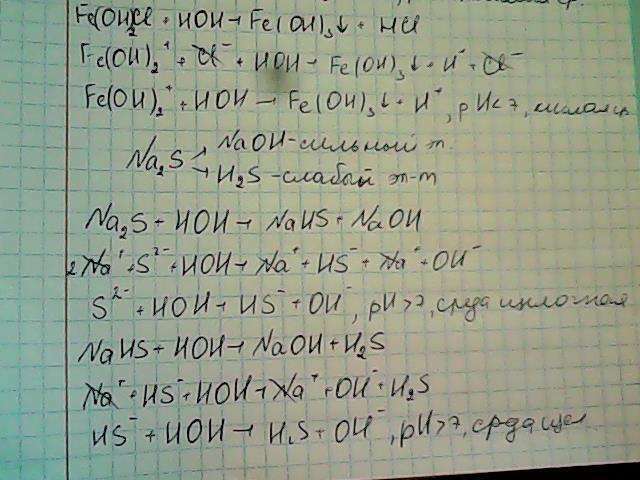 Fe(OH)₂Cl + HOH → Fe(OH)₃↓ + HCl
Fe(OH)₂⁺ + Cl⁻ + HOH → Fe(OH)₃↓ + H⁺ + Cl⁻
Fe(OH)₂⁺ + HOH → Fe(OH)₃↓ + H⁺, pH<7, кислая ср.
Na₂S → NaOH - сильный э.
→ H₂S - слабый эл-т
Na₂S + HOH → NaHS + NaOH
2Na⁺ + S²⁻ + HOH → Na⁺ + HS⁻ + Na⁺ + OH⁻
S²⁻ + HOH → HS⁻ + OH⁻, pH>7, среда щелочная
NaHS + HOH → NaOH + H₂S
Na⁺ + HS⁻ + HOH → Na⁺ + OH⁻ + H₂S
HS⁻ + HOH → H₂S + OH⁻, pH>7, среда щел